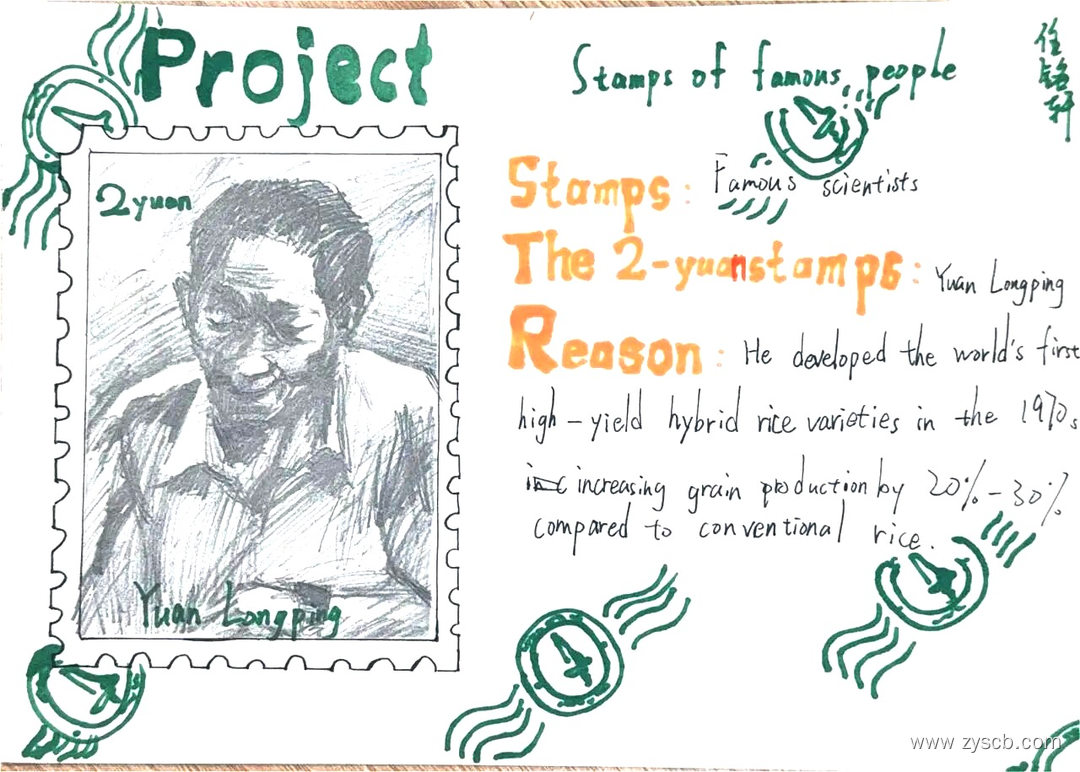 Project
Stamps of famous people
任铭轩
2yuan
Yuan Longping
Stamps: Famous scientists
The 2-yuanstamps: Yuan Longping
Reason: He developed the world's first
high-yield hybrid rice varieties in the 1970s
increasing grain production by 20%-30%
compared to conventional rice.
www.zyscb.com